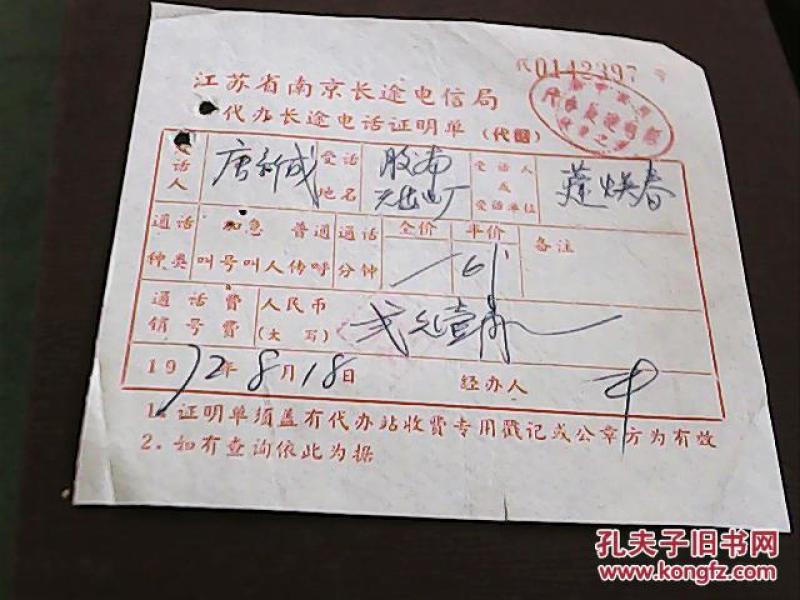 代0142397号
江苏省南京长途电信局
代办长途电话证明单(代圆)
受话人 唐新成 受话地名 受话人或受话单位 焕春
通话种类 加急 普通 叫号 叫人 传呼 通话分钟 全价 半价 6 备注
通话费 销号费 人民币(大写) 弍元壹角
1972年8月18日 经办人
1.证明单须盖有代办站收费专用戳记或公章方为有效
2.如有查询依此为据
孔夫子旧书网
www.kongfz.com